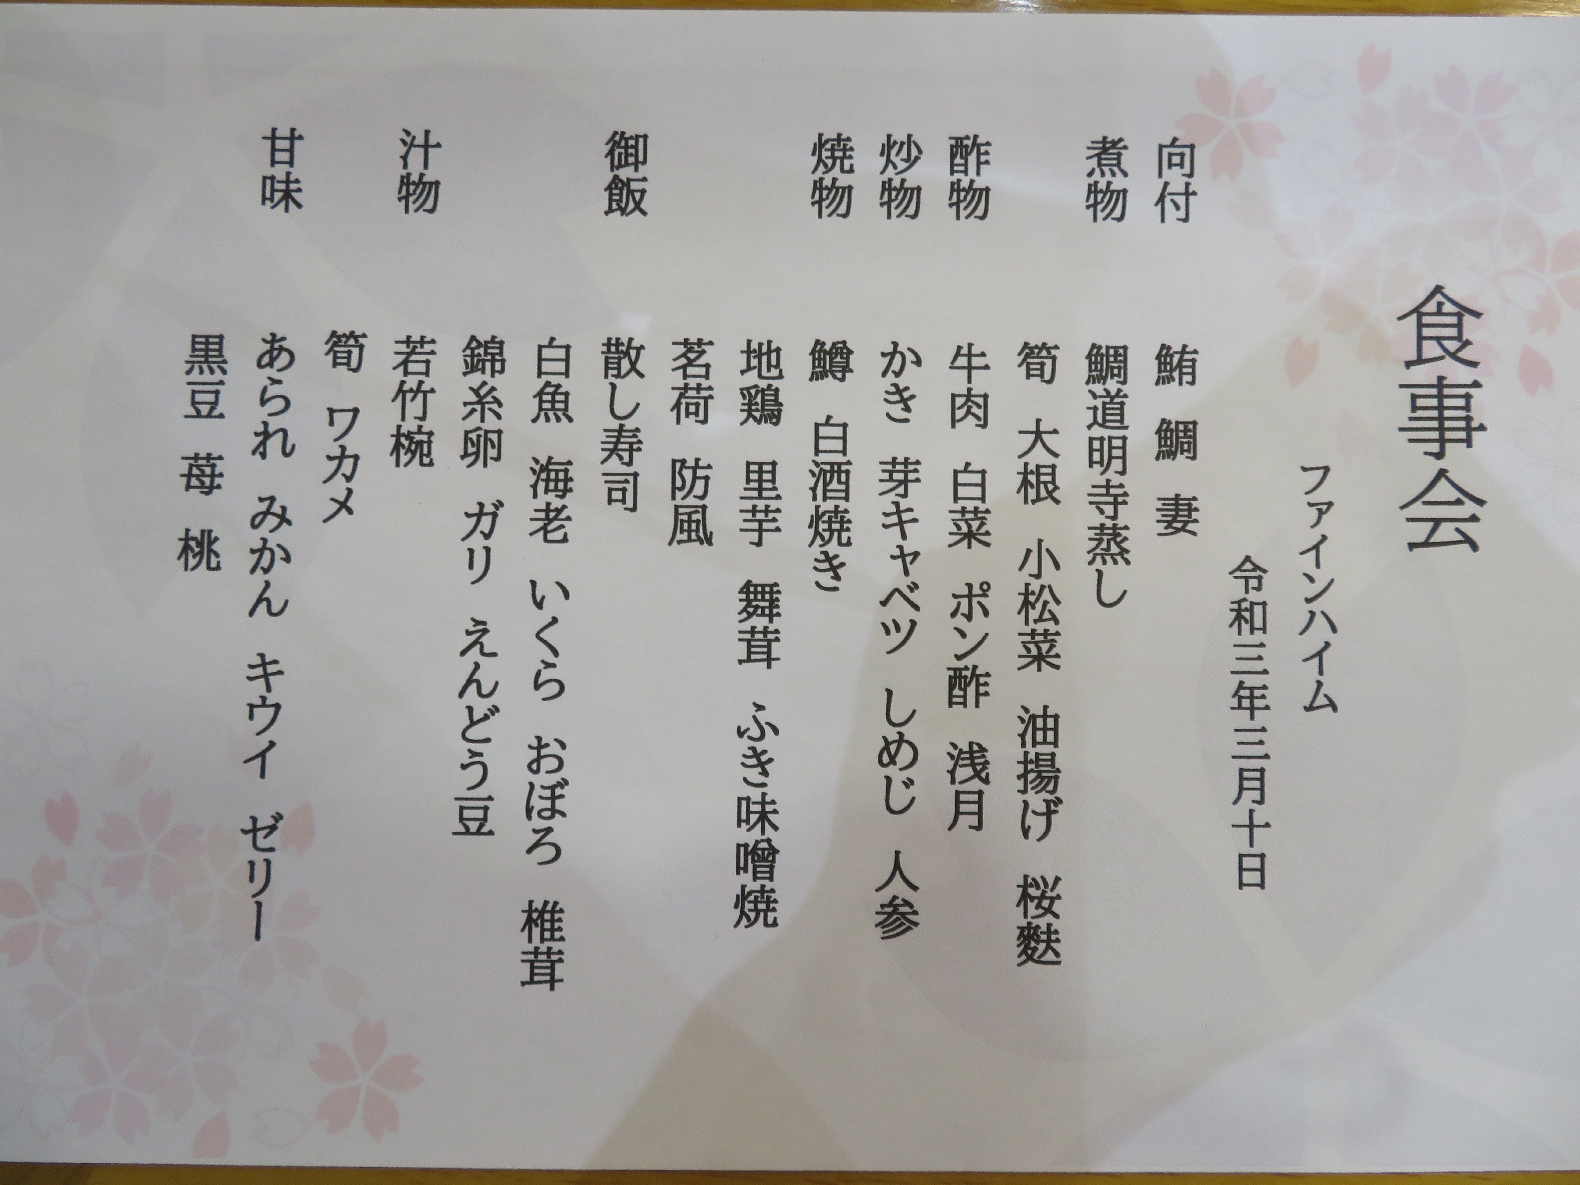 食事会
ファインハイム
令和三年三月十日
向付 鮪 鯛 妻
煮物 鯛道明寺蒸し
筍 大根 小松菜 油揚げ 桜麩
酢物 牛肉 白菜 ポン酢 浅月
炒物 かき 芽キャベツ しめじ 人参
焼物 鱒 白酒焼き
地鶏 里芋 舞茸 ふき味噌焼
茗荷 防風
御飯 散し寿司
白魚 海老 いくら おぼろ 椎茸
錦糸卵 ガリ えんどう豆
汁物 若竹椀
筍 ワカメ
甘味 あられ みかん キウイ ゼリー
黒豆 苺 桃